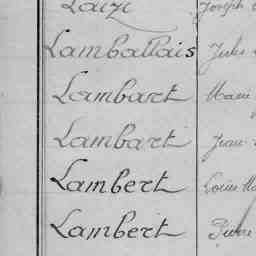 Laizé Joseph
Lamballais Jules
Lambart Marie
Lambart Jean
Lambert Louis
Lambert Pierre